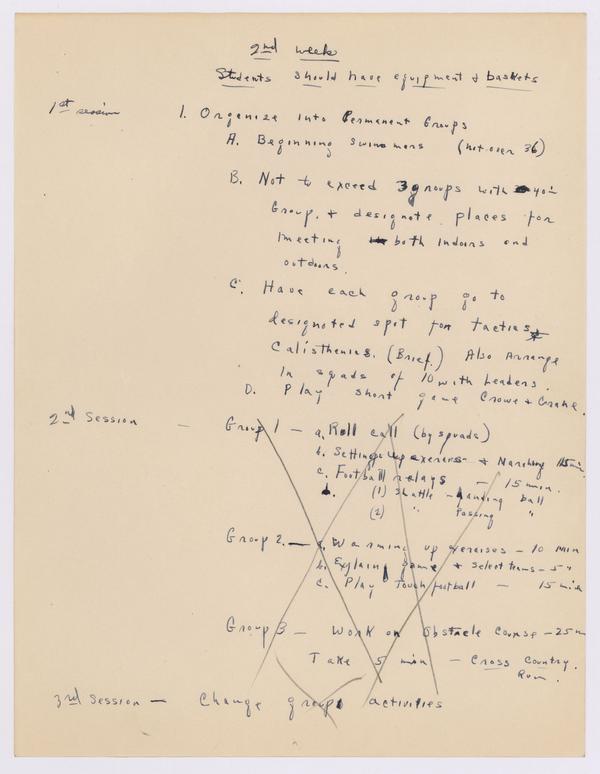 2nd week
Students should have equipment & baskets
1st session
1. Organize into Permanent Groups
A. Beginning swimmers (not over 36)
B. Not to exceed 3 groups with 40 in
Group. & designate places for
meeting both indoors and
outdoors.
C. Have each group go to
designated spot for tactics &
Calisthenics. (Brief.) Also Arrange
In squads of 10 with Leaders.
D. Play short game Crows & Cranes.
2nd Session — Group 1 — a. Roll call (by squads)
b. Setting up exercises & Marching 15 min
c. Football relays — 15 min.
(1) Shuttle - handing ball
(2) " Passing "
Group 2. — a. Warming up exercises — 10 min
b. Explain game & select teams — 5 "
c. Play Touch football — 15 min
Group 3 — Work on Obstacle Course — 25 m
Take 5 min — Cross Country.
Run.
3rd Session — Change groups activities